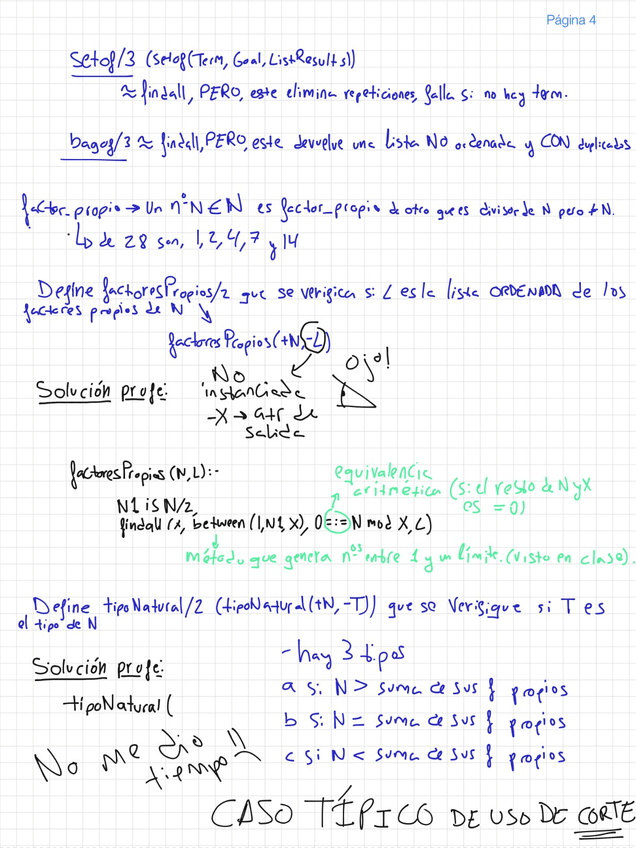 Página 4
setof/3 (setof(Term, Goal, ListResults))
≈ findall, PERO, este elimina repeticiones, falla si no hay term.
bagof/3 ≈ findall, PERO, este devuelve una lista NO ordenada y CON duplicados
factor_propio → Un nº N ∈ N es factor_propio de otro que es divisor de N pero ≠ N.
↳ de 28 son, 1, 2, 4, 7 y 14
Define factoresPropios/2 que se verifica si L es la lista ORDENADA de los
factores propios de N
factoresPropios(+N,-L)
Ojo!
Solución profe:
NO
instanciada
-X → atr de
salida
factoresPropios(N,L):-
N1 is N/2,
findall(X, between(1,N1,X), 0=:=N mod X,L)
equivalencia
aritmética (si el resto de N y X
es = 0)
método que genera nºs entre 1 y un límite. (visto en clase).
Define tipoNatural/2 (tipoNatural(+N, -T)) que se verifique si T es
el tipo de N
Solución profe:
tipoNatural(
- hay 3 tipos
a si N > suma de sus f propios
b si N = suma de sus f propios
c si N < suma de sus f propios
No me dio
tiempo !!
CASO TÍPICO DE USO DE CORTE